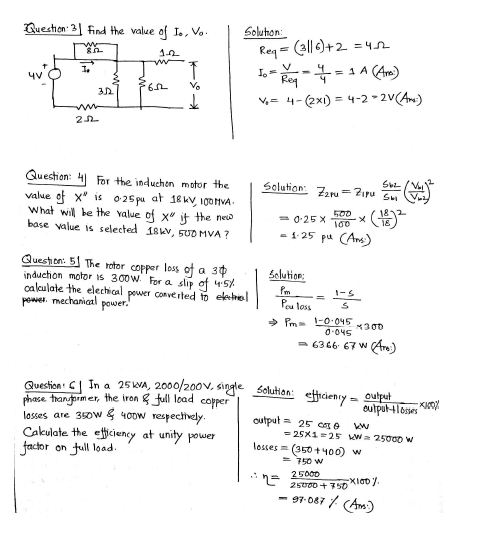 Question: 3| Find the value of I₀, V₀.
8Ω
1Ω
I₀
4V
+
-
3Ω
6Ω
V₀
2Ω
Solution:
Req = (3||6)+2 = 4Ω
I₀ = V/Req = 4/4 = 1 A (Ans:)
V₀ = 4-(2x1) = 4-2 = 2V (Ans:)
Question: 4| For the induction motor the
value of X" is 0.25pu at 18kV, 100MVA.
What will be the value of X" if the new
base value is selected 18kV, 500MVA?
Solution: Z2pu = Z1pu Sb2/Sb1 (Vb1/Vb2)²
= 0.25 x 500/100 x (18/18)²
= 1.25 pu (Ans:)
Question: 5| The rotor copper loss of a 3φ
induction motor is 300W. For a slip of 4.5%
calculate the electrical power converted to electrical
power. mechanical power.
Solution:
Pm/Pcu loss = 1-s/s
⇒ Pm = 1-0.045/0.045 x300
= 6366.67 W (Ans:)
Question: 6| In a 25 kVA, 2000/200V, single
phase transformer, the iron & full load copper
losses are 350W & 400W respectively.
Calculate the efficiency at unity power
factor on full load.
Solution: efficiency = output/output+losses x100%
output = 25 cosθ kW
= 25x1 = 25 kW = 25000 W
losses = (350+400) W
= 750 W
∴ η = 25000/25000+750 x100%
= 97.087 % (Ans:)